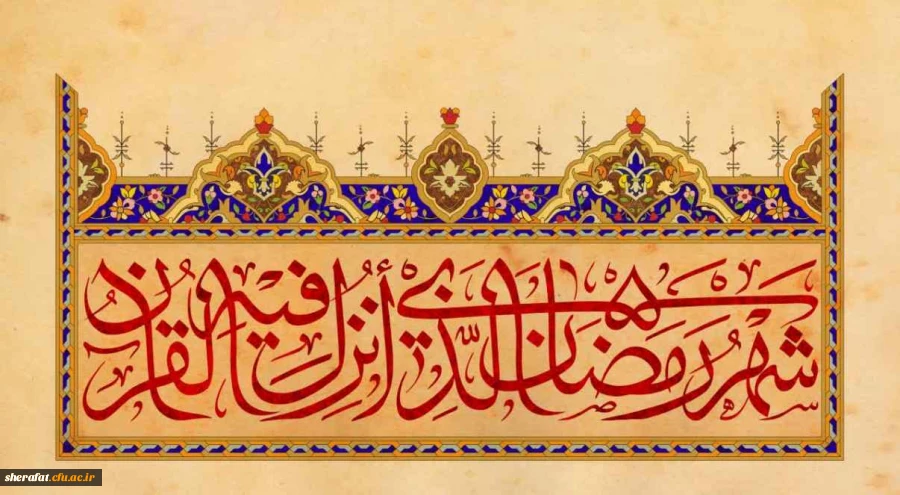 شهر رمضان الذي أنزل فيه القرآن
sherafat.cfu.ac.ir